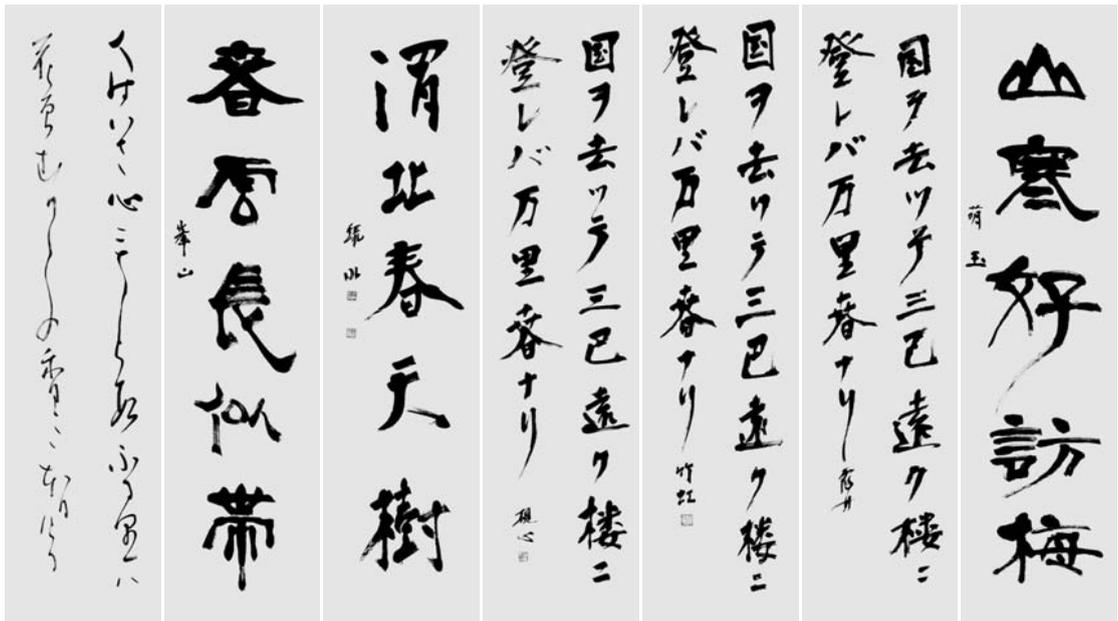 山寒好訪梅
萌玉
国ヲ去ツテ三巴遠ク楼ニ
登レバ万里春ナリ
国ヲ去ツテ三巴遠ク楼ニ
登レバ万里春ナリ
竹虹
国ヲ去ツテ三巴遠ク楼ニ
登レバ万里春ナリ
硯心
渭北春天樹
春雲長似帯
峯山
人はいさ心もしらずふる里ハ
花ぞむかしの香ににほひける